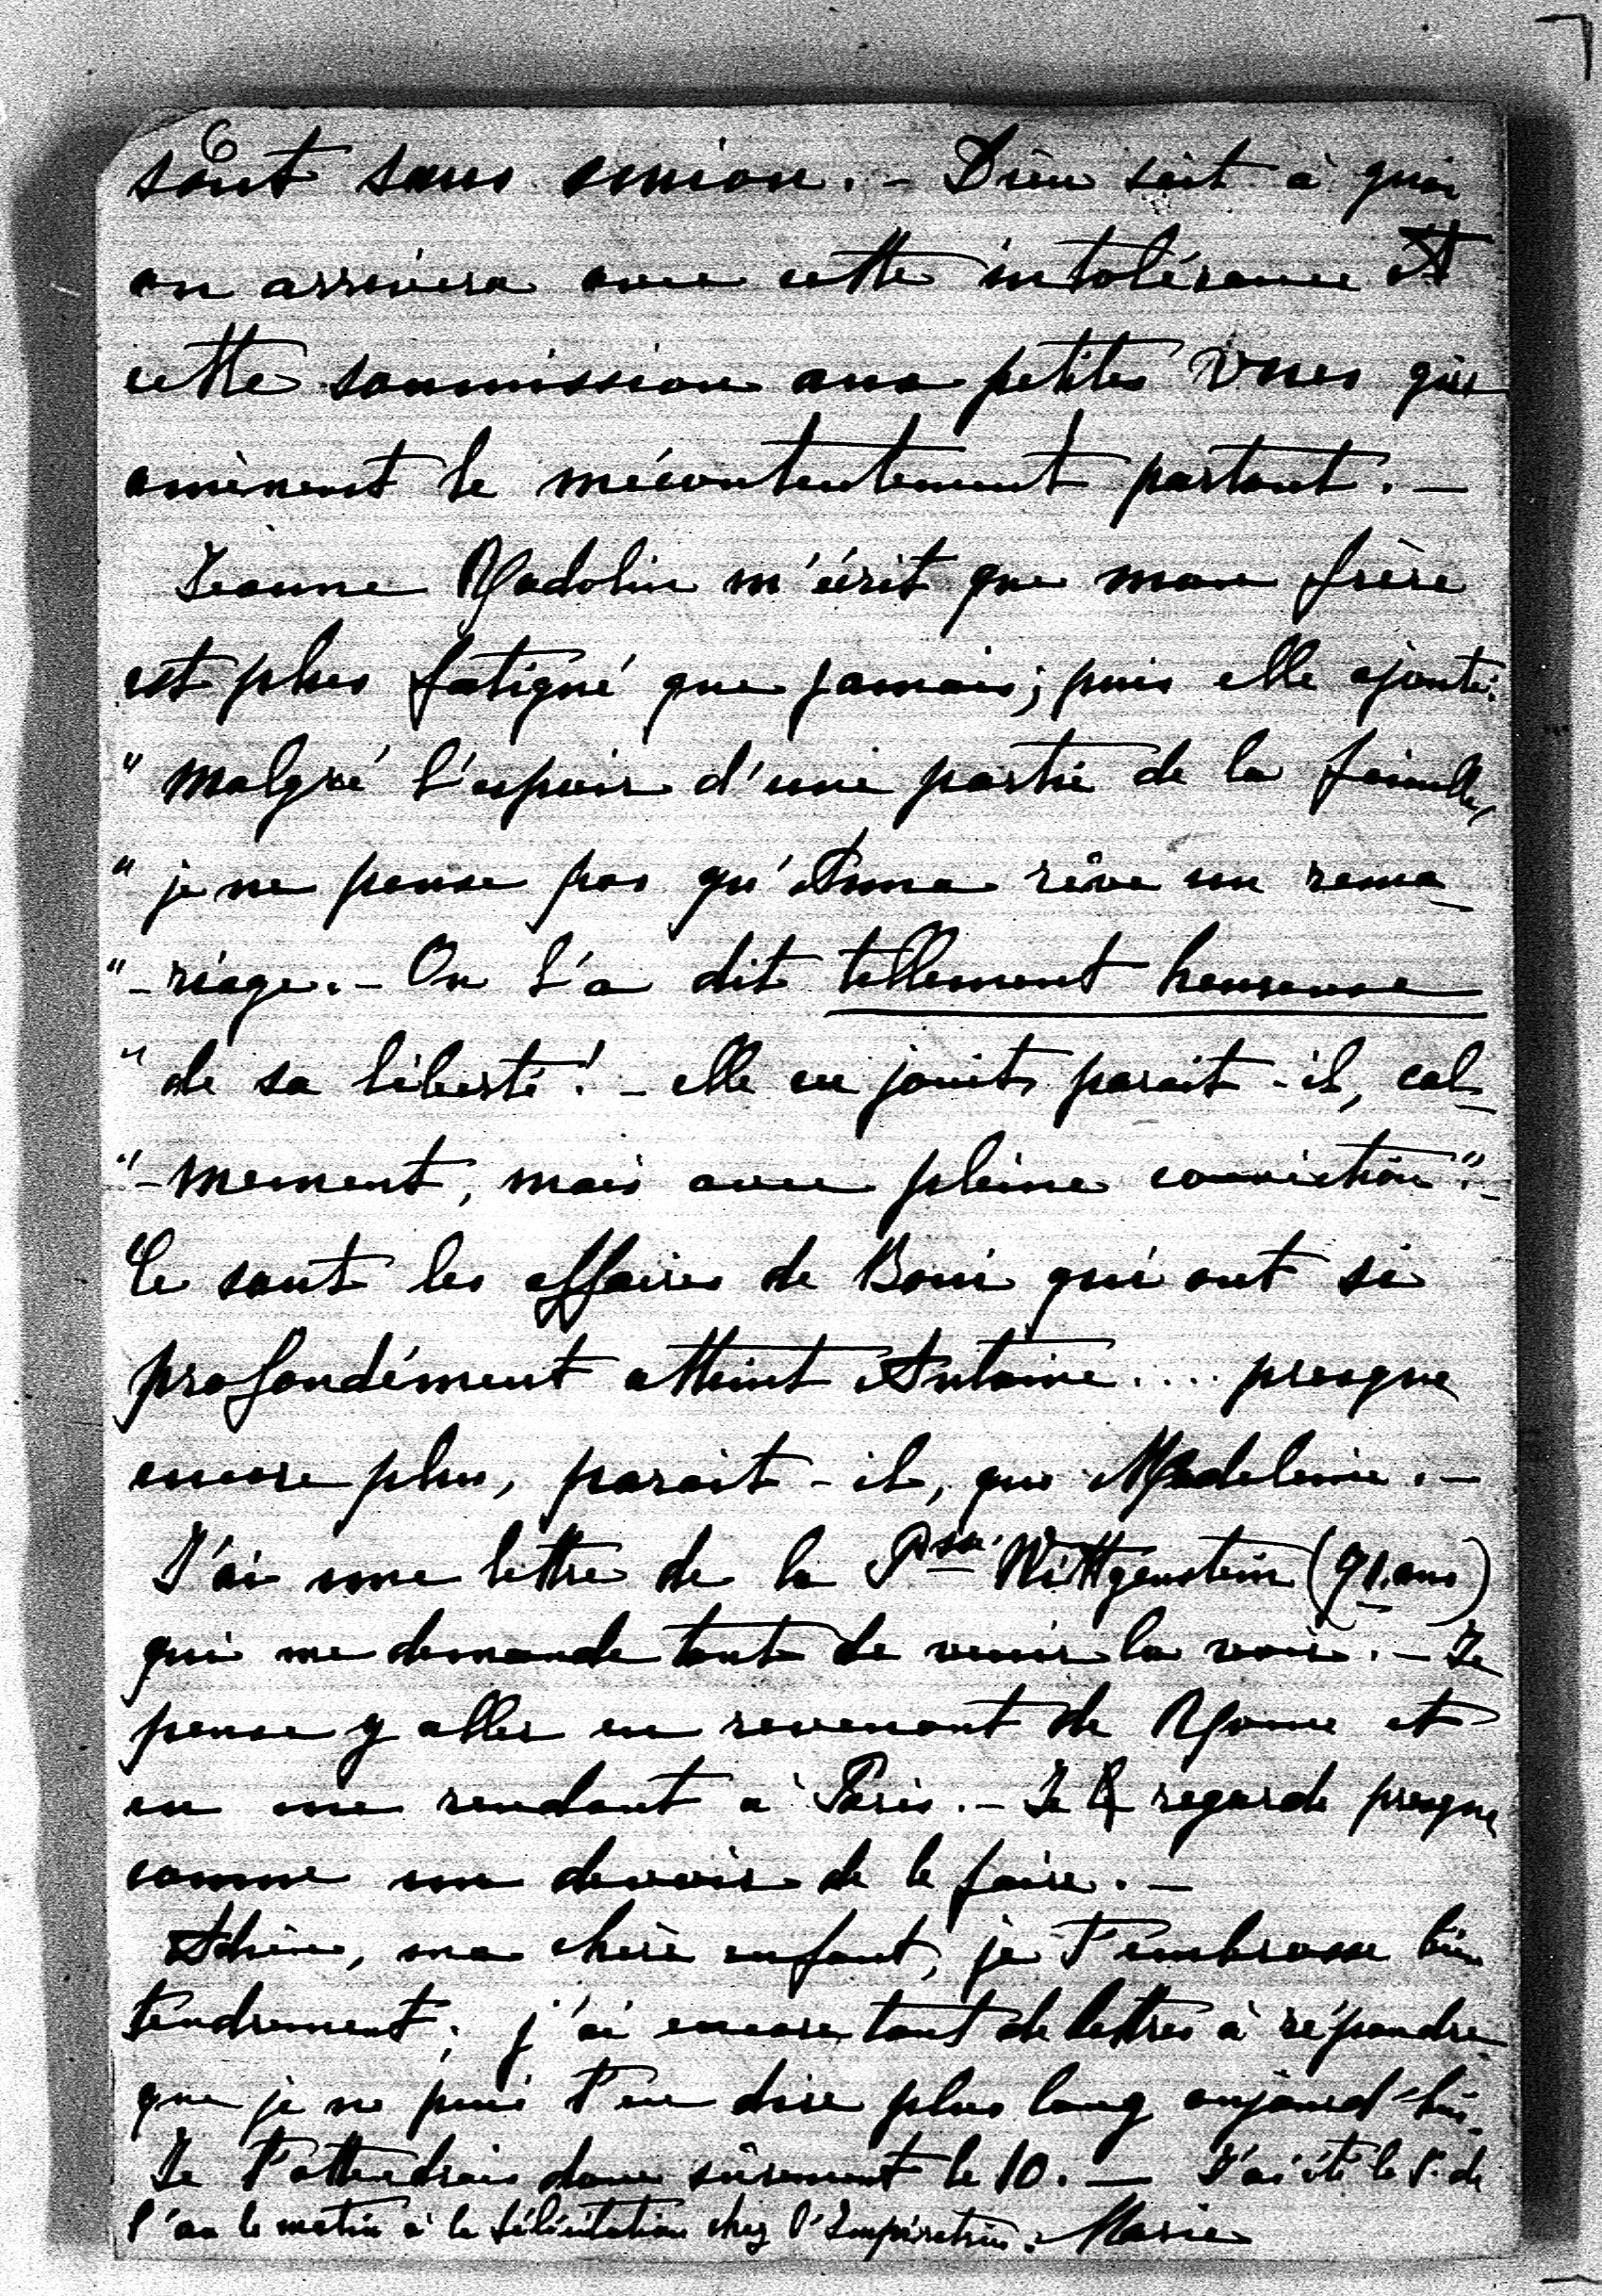 6
sont sans union. - Dieu sait à quoi
on arrivera avec cette intolérance et
cette soumission aux petites vues qui
amènent le mécontentement partout. —
Jeanne Radolin m'écrit que mon frère
est plus fatigué que jamais; puis elle ajoute:
" malgré l'espoir d'une partie de la famille,
" je ne pense pas qu'Anna rêve un rema-
" - riage. - On l'a dit tellement heureuse
" de sa liberté! - elle en jouit, parait-il, cal-
" - mement, mais avec pleine conviction". -
Ce sont les affaires de Boni qui ont si
profondément atteint Antoine.... presque
encore plus, parait-il, que Madeleine. —
J'ai une lettre de la Psse Wittgenstein (91. ans)
qui me demande tant de venir la voir. - Je
pense y aller en revenant de Rome et
en me rendant à Paris. - Je regarde presque
comme un devoir de le faire. —
Adieu, ma chère enfant, je t'embrasse bien
tendrement; j'ai encore tant de lettres à répondre
que je ne puis t'en dire plus long aujourd'hui.
Je t'attendrais donc sûrement le 10. — J'ai été le 1. de
l'an le matin à la félicitation chez l'Impératrice. Marie